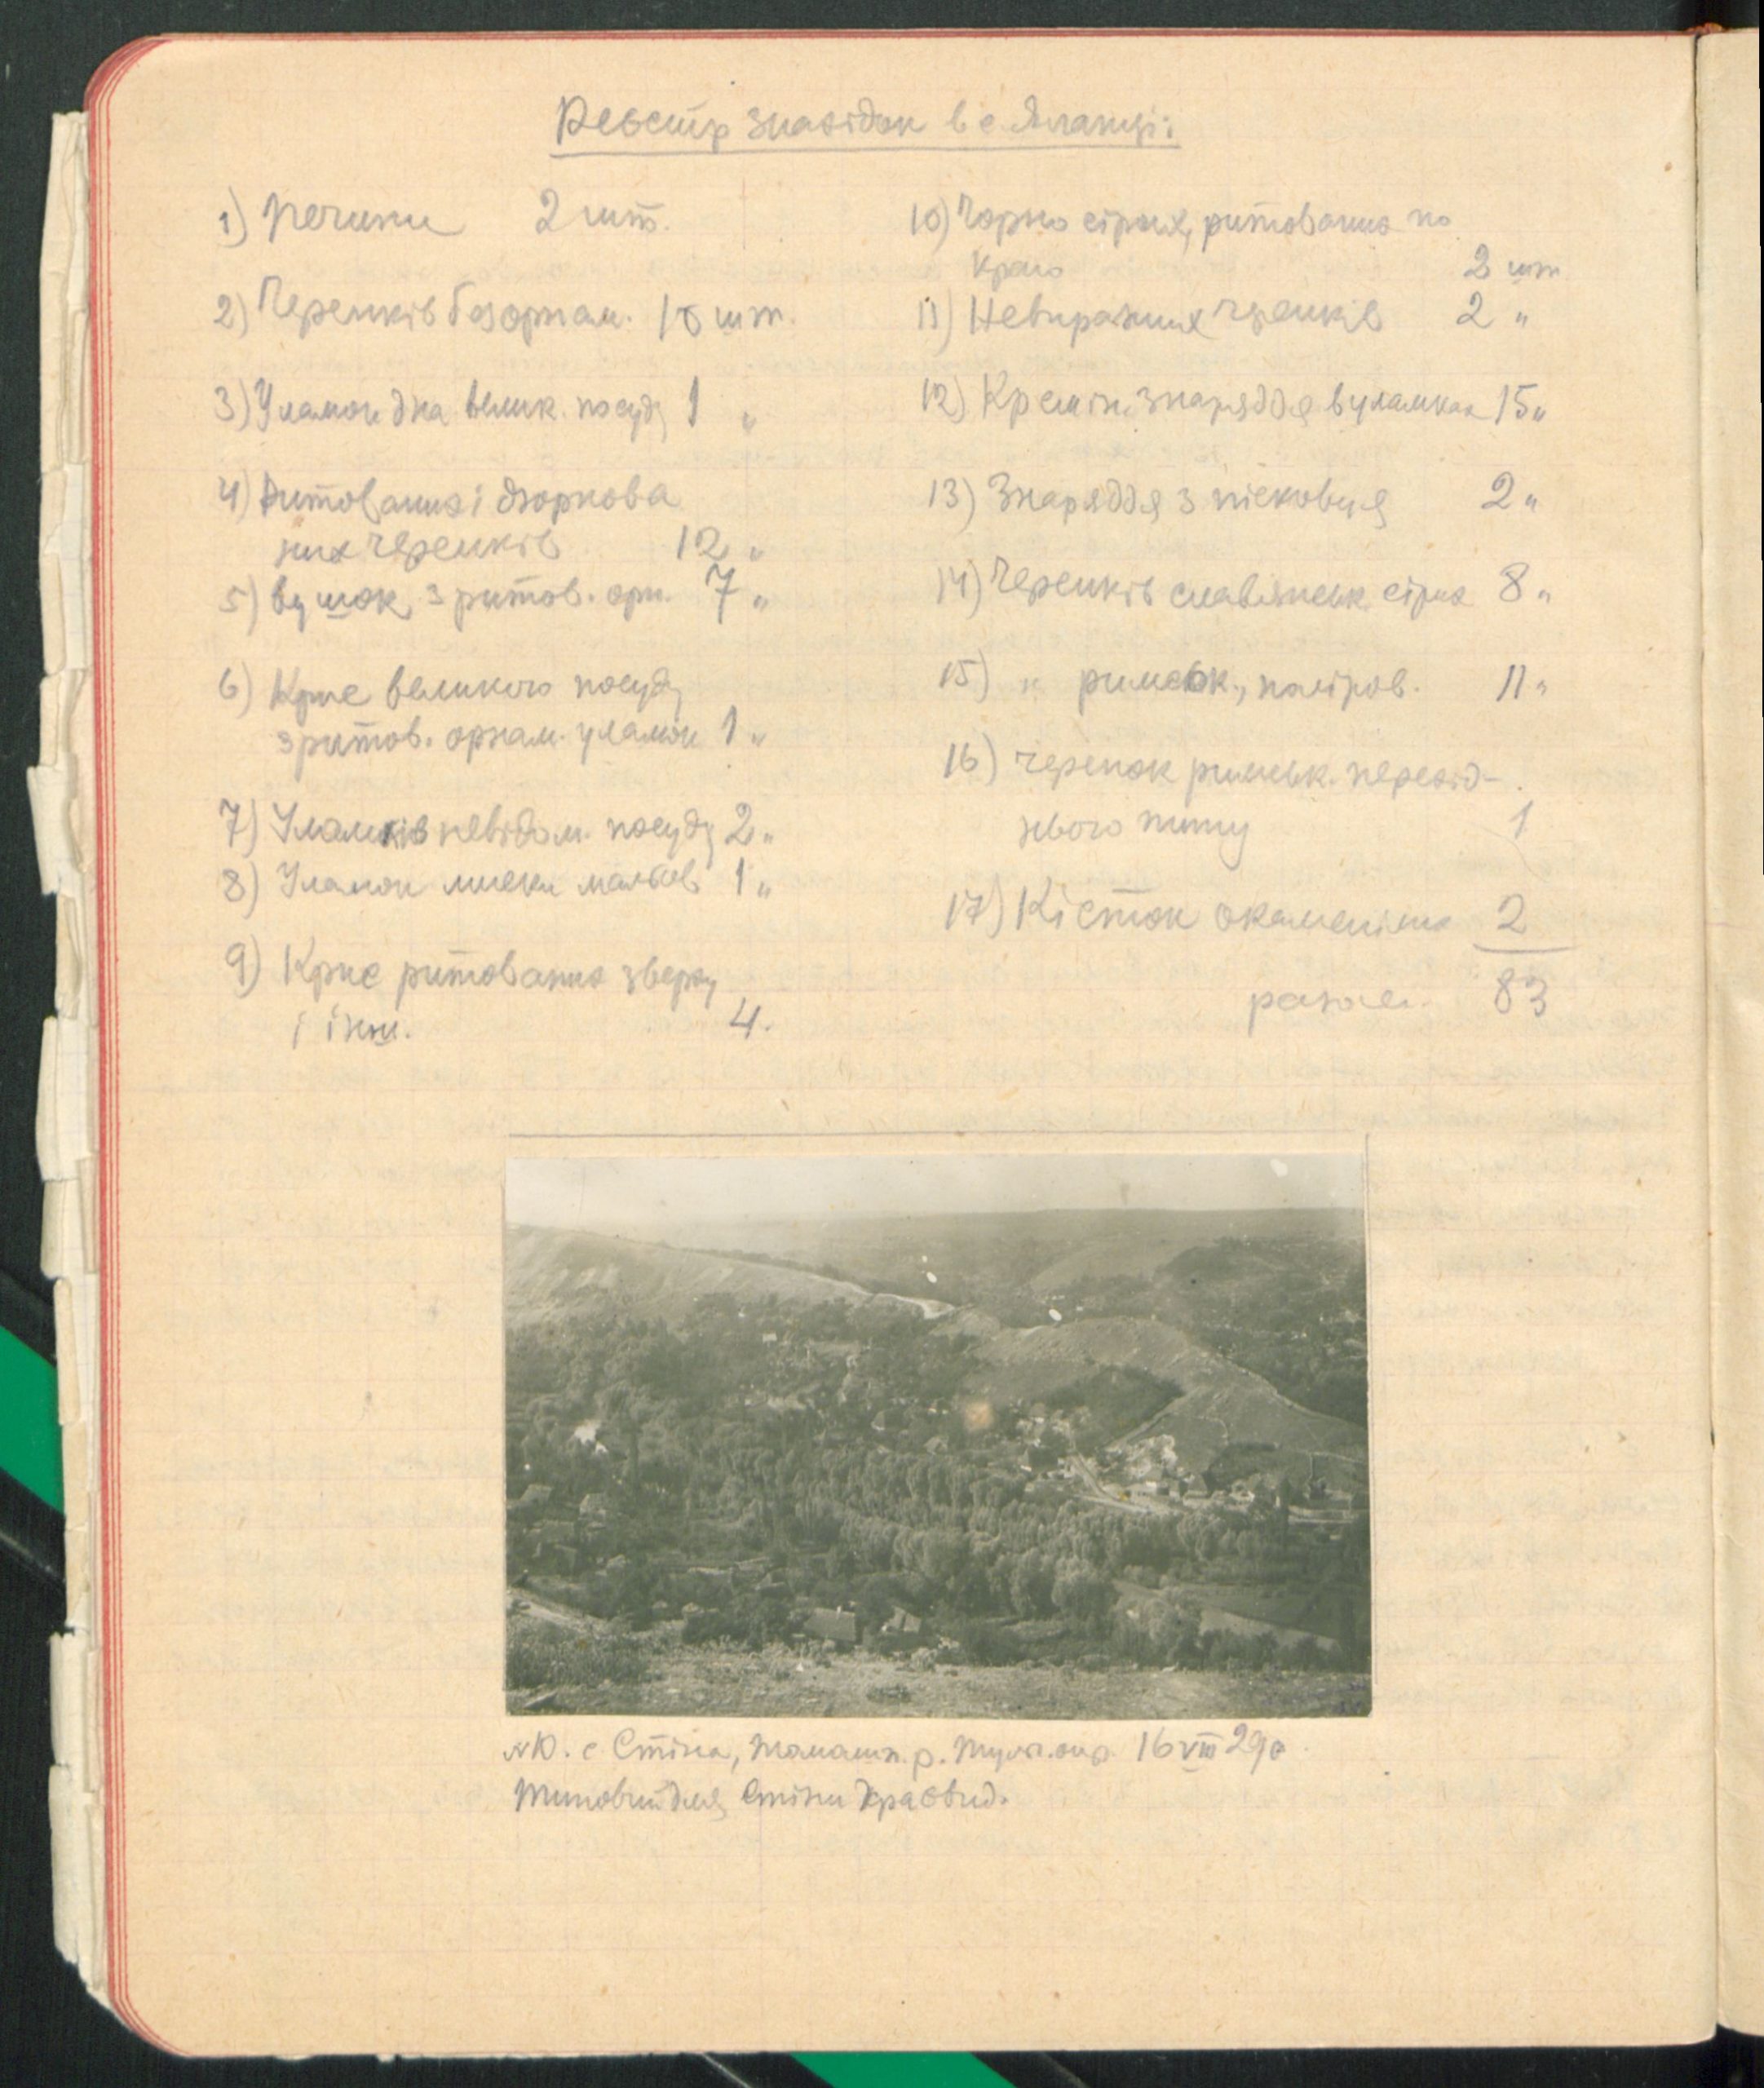 Реєстр знахідок в с Яланці:
1) Печини 2 шт.
2) Черепків без орнам. 10 шт.
3) Уламок дна велик. посуду 1 „
4) Ритованих і дзоркова
них черепків 12 „
5) вушок з ритов. орн. 7 „
6) Криє великого посуду
з ритов. орнам. уламок 1 „
7) Уламків невідом. посуду 2 „
8) Уламок миски мальов 1 „
9) Криє ритованих зверху
і інш. 4.
10) Чорно сірих, ритованих по
краю 2 шт
11) Невиразних черепків 2 „
12) Кремін. знаряддя в уламках 15 „
13) Знаряддя з пісковця 2 „
14) Черепків славянськ сірих 8 „
15) „ римськ., поліров. 11 „
16) Черепок римськ. перехід-
нього типу 1
17) Кісток окаменілих 2
разом. 83
с Стіна, Томашп. р. Тульч. окр. 16 VIII 29 р.
Типовий для Стіни краєвид.